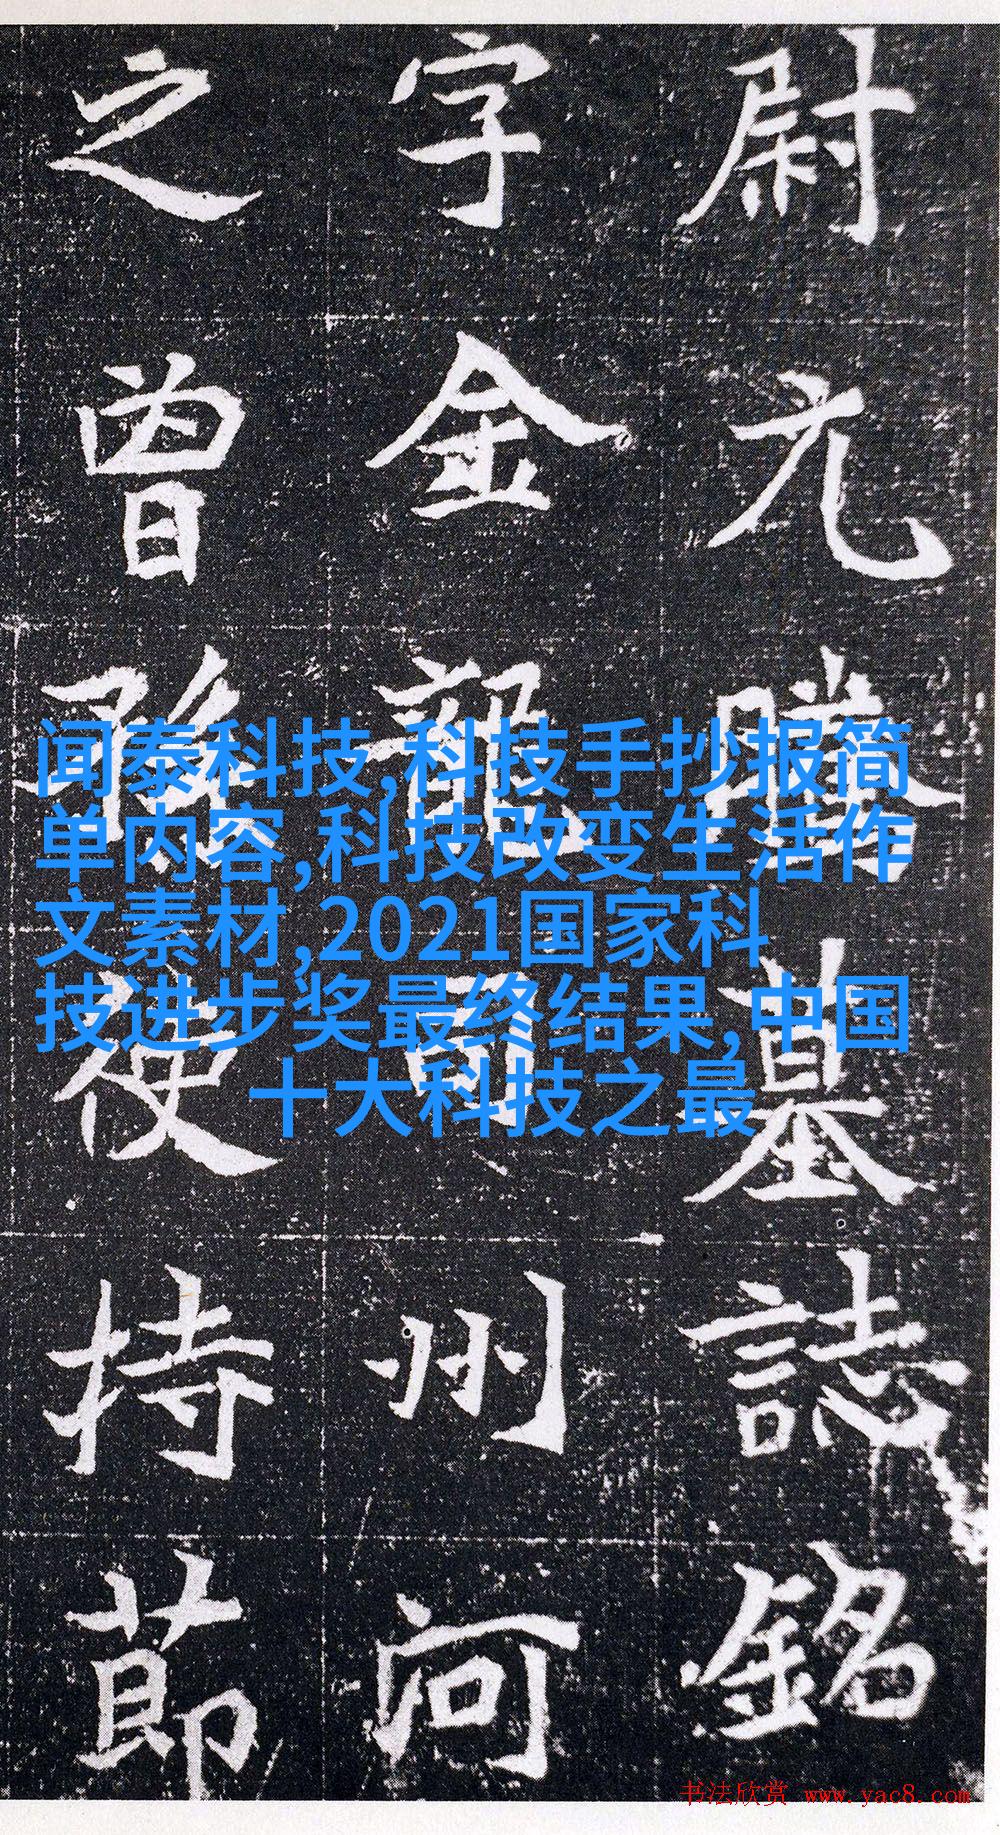 尉元勝墓誌銘
字金龍司州河
之曾孫使持節
闻泰科技,科技手抄报简
单内容,科技改变生活作
文素材,2021国家科
技进步奖最终结果,中国
十大科技之最
书法欣赏 www.yac8.com